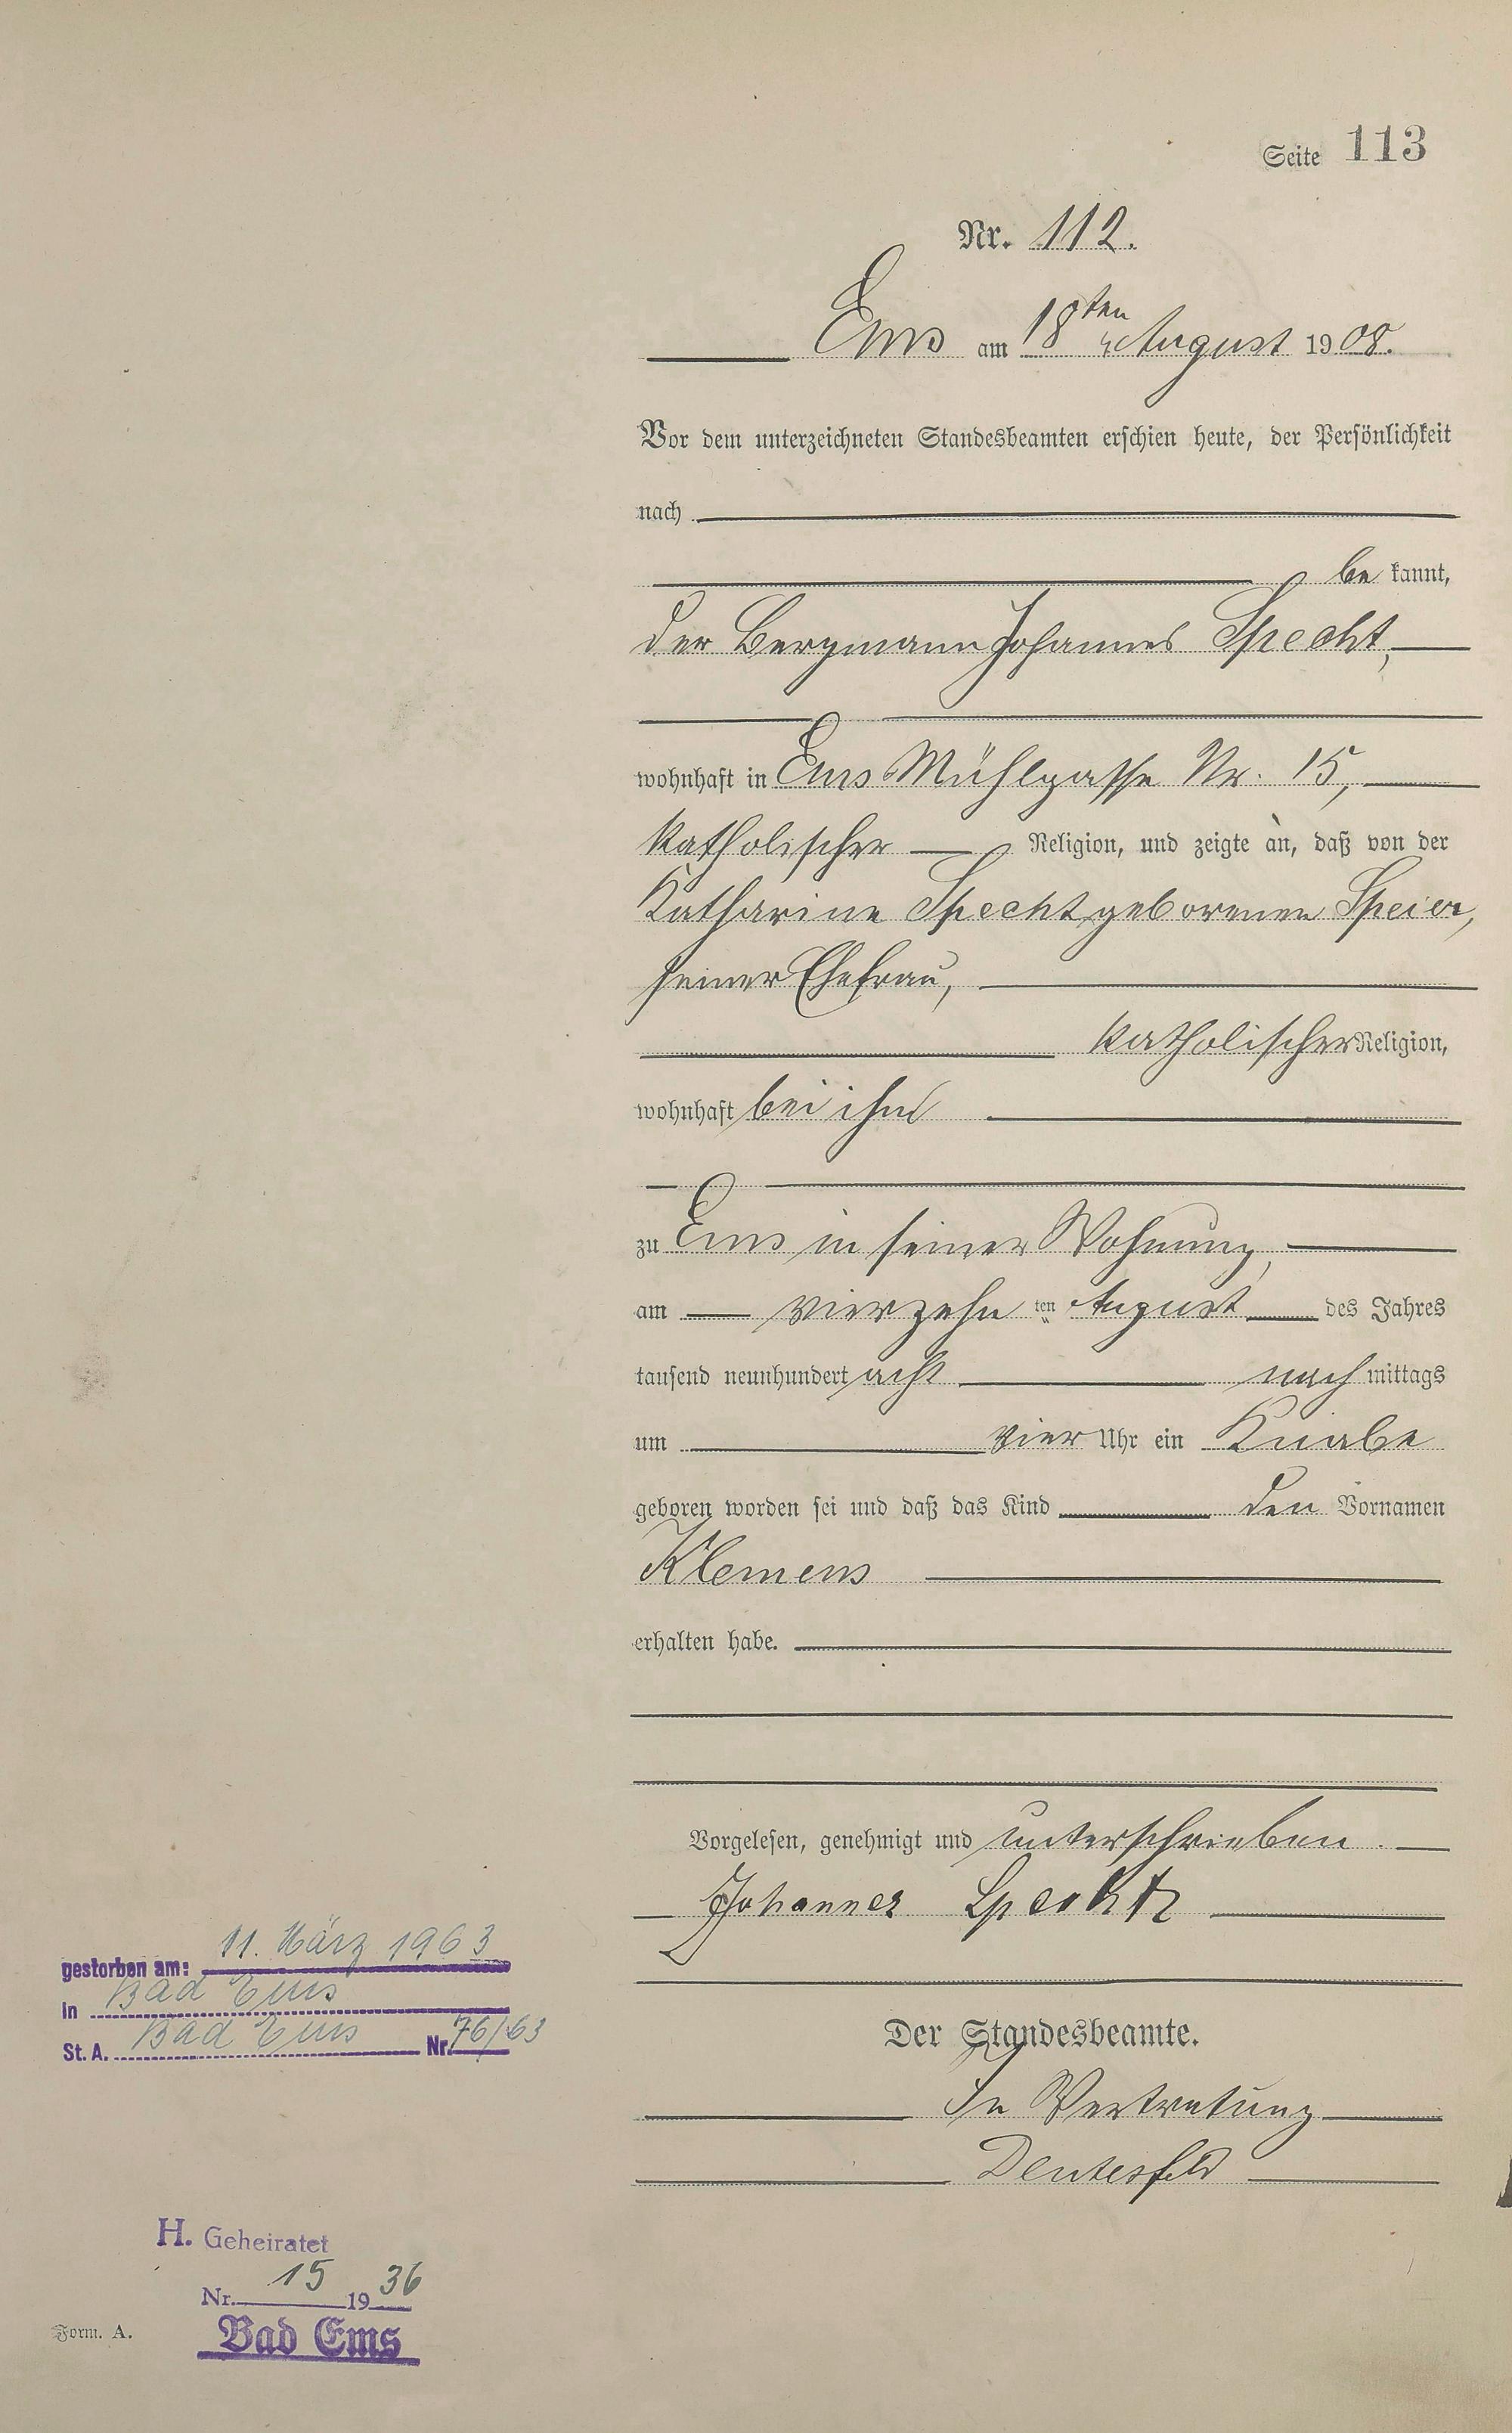 Seite 113
Nr. 112.
Ems am 18ten August 1908.
Vor dem unterzeichneten Standesbeamten erschien heute, der Persönlichkeit
nach
be kannt,
der Bergmann Johannes Specht,
wohnhaft in Ems Mühlgasse Nr. 15,
katholischer Religion, und zeigte an, daß von der
Katharine Specht geborenen Speier,
seiner Ehefrau,
katholischer Religion,
wohnhaft bei ihm
zu Ems in seiner Wohnung,
am vierzehn ten August des Jahres
tausend neunhundert acht nach mittags
um vier Uhr ein Knabe
geboren worden sei und daß das Kind den Vornamen
Klemens
erhalten habe.
Vorgelesen, genehmigt und unterschrieben.
Johannes Specht
Der Standesbeamte.
In Vertretung
gestorben am: 11. März 1963
in Bad Ems
St. A. Bad Ems Nr. 76/63
H. Geheiratet
Nr. 15 1936
Bad Ems
Form. A.